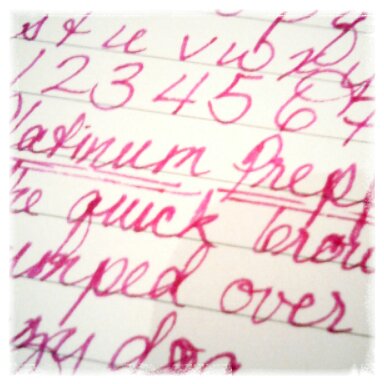 s t u v w x y
1 2 3 4 5 6 7
Platinum Prep
the quick brow
umped over
zy dog